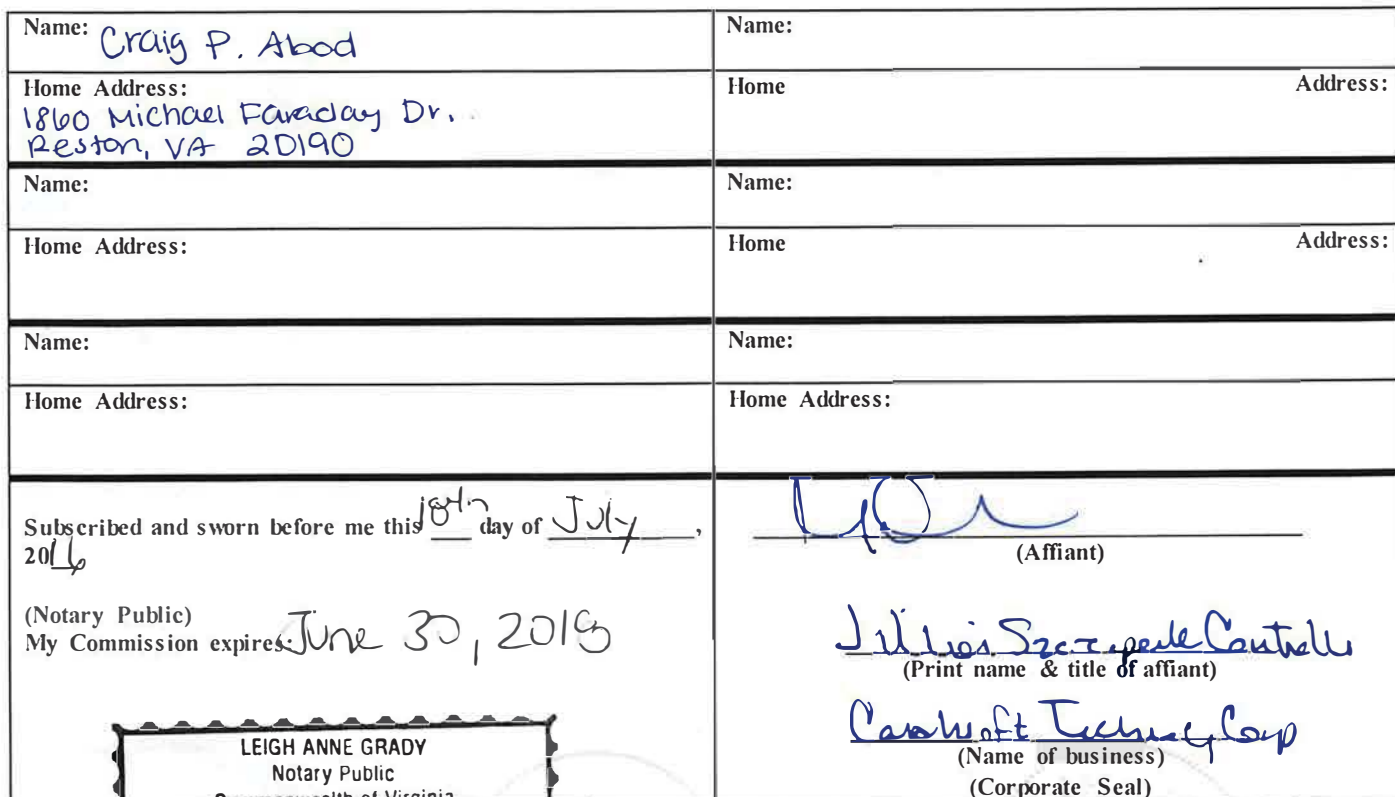 Name: Craig P. Abod
Name:
Home Address:
1860 Michael Faraday Dr.
Reston, VA 20190
Home Address:
Name:
Name:
Home Address:
Home Address:
Name:
Name:
Home Address:
Home Address:
Subscribed and sworn before me this 18th day of July,
2016
(Notary Public)
My Commission expires: June 30, 2018
LEIGH ANNE GRADY
Notary Public
Commonwealth of Virginia
(Affiant)
(Print name & title of affiant)
Carahsoft Technology Corp
(Name of business)
(Corporate Seal)